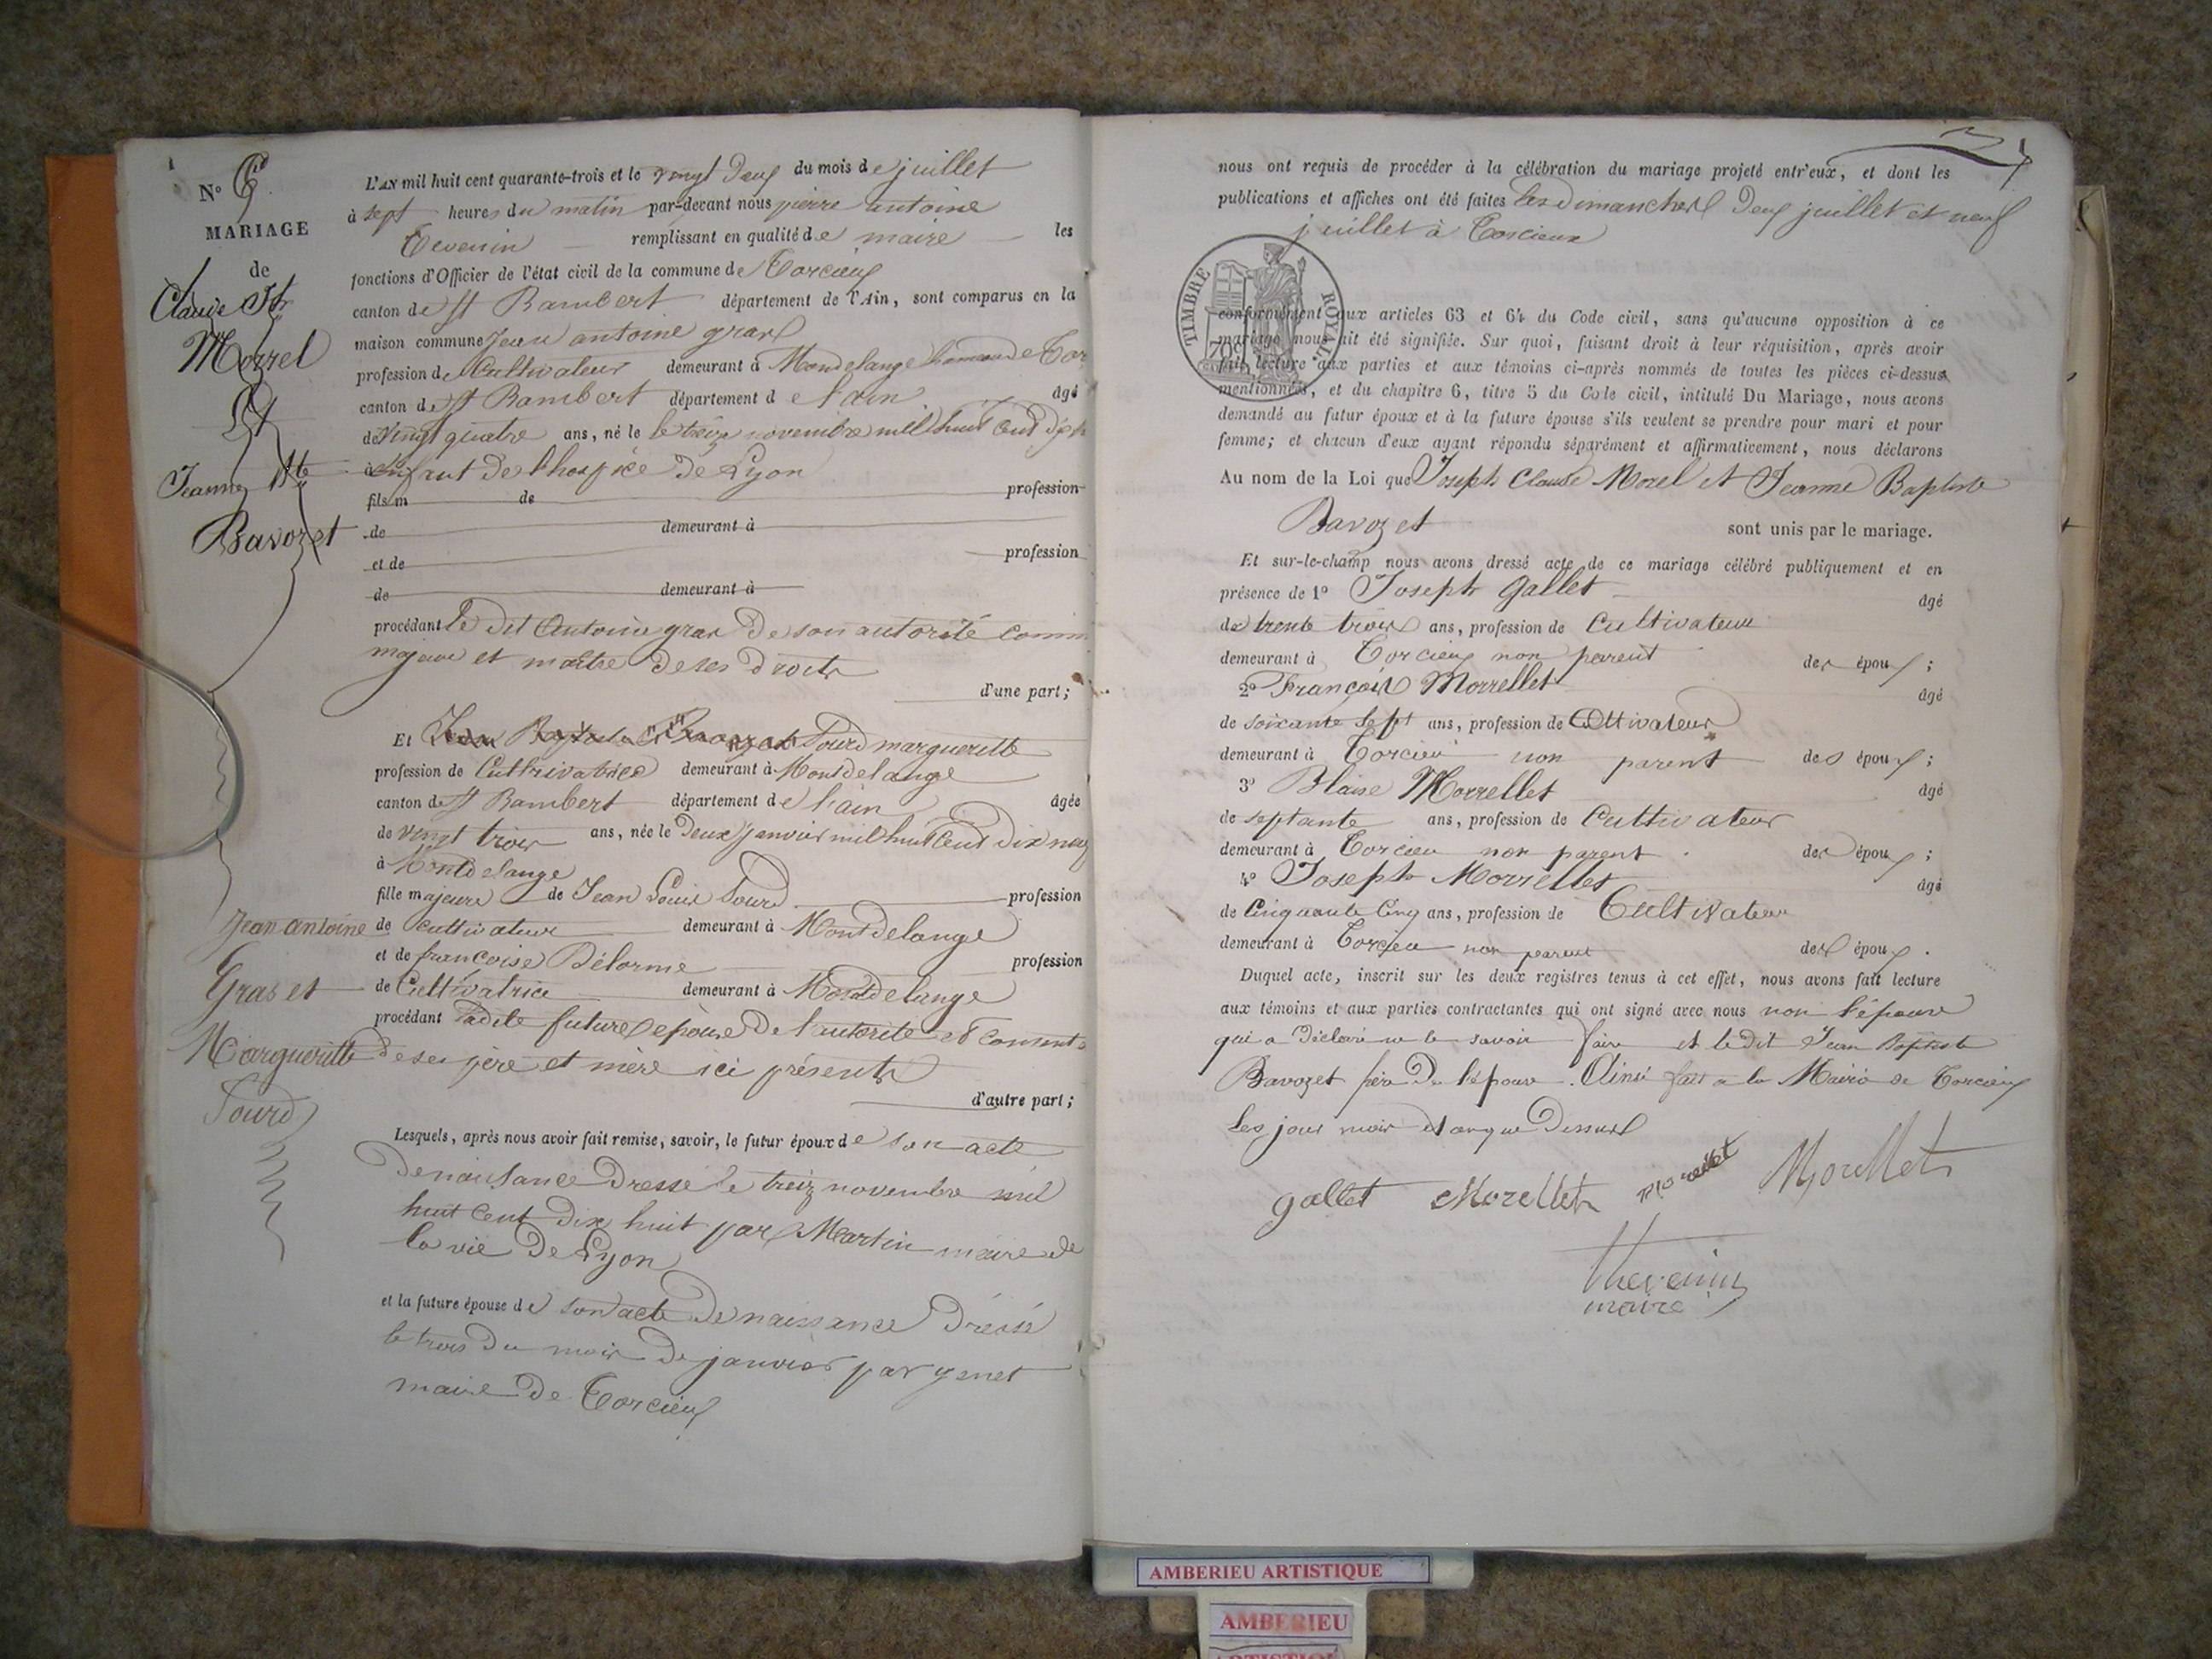 N° 6.
MARIAGE
de
Claude Jh
Morrel
Et
Jeanne Bte
Bavozet
Jean Antoine
Gras et
Margueritte
Sourd
L'AN mil huit cent quarante-trois et le vingt deux du mois de juillet
à sept heures du matin par-devant nous pierre antoine
Tevenin remplissant en qualité de maire les
fonctions d'Officier de l'état civil de la commune de Torcieux
canton de St Rambert département de l'Ain, sont comparus en la
maison commune Jean antoine gras
profession de Cultivateur demeurant à Mondelange hameau de Tor
canton de St Rambert département de l'ain âgé
de vingt quatre ans, né le le treize novembre mil huit cent dix h
à Enfant de l'hospice de Lyon
fils m de profession
de demeurant à
et de profession
de demeurant à
procédant le dit Antoine gras de son autorité comm
majeur et maître de ses droits
d'une part;
Et Jean Baptiste Bavozet Sourd margueritte
profession de Cultrivatrice demeurant à Montdelange
canton de St Rambert département de l'ain âgée
de vingt trois ans, née le deux janvier mil huit cent dix neuf
à Montdelange
fille majeure de Jean Louis Sourd profession
de cultivateur demeurant à Montdelange
et de françoise Délorme profession
de Cultivatrice demeurant à Montdelange
procédant ladite future épouse de l'autorité et consent
de ses père et mère ici présents
d'autre part;
Lesquels, après nous avoir fait remise, savoir, le futur époux de son acte
de naissance dressé le treize novembre mil
huit cent dix huit par Martin maire de
la vie de Lyon
et la future épouse de son acte de naissance dréssé
le trois du mois de janvier par genet
maire de Torcieux
nous ont requis de procéder à la célébration du mariage projeté entr'eux, et dont les
publications et affiches ont été faites les dimanches deux juillet et neuf
juillet à Torcieux
TIMBRE ROYAL
70c
conformément aux articles 63 et 64 du Code civil, sans qu'aucune opposition à ce
mariage nous ait été signifiée. Sur quoi, faisant droit à leur réquisition, après avoir
fait lecture aux parties et aux témoins ci-après nommés de toutes les pièces ci-dessus
mentionnées, et du chapitre 6, titre 5 du Code civil, intitulé Du Mariage, nous avons
demandé au futur époux et à la future épouse s'ils veulent se prendre pour mari et pour
femme; et chacun d'eux ayant répondu séparément et affirmativement, nous déclarons
Au nom de la Loi que Joseph Claude Morel et Jeanne Baptiste
Bavozet sont unis par le mariage.
Et sur-le-champ nous avons dressé acte de ce mariage célébré publiquement et en
présence de 1° Joseph Gallet âgé
de trente trois ans, profession de Cultivateur
demeurant à Torcieux non parent des époux;
2° François Morrellet âgé
de soixante sept ans, profession de Cultivateur
demeurant à Torcieu non parent des époux;
3° Blaise Morrellet âgé
de septante ans, profession de Cultivateur
demeurant à Torcieu non parent des époux;
4° Joseph Morrellet âgé
de Cinquante Cinq ans, profession de Cultivateur
demeurant à Torcieu non parent des époux.
Duquel acte, inscrit sur les deux registres tenus à cet effet, nous avons fait lecture
aux témoins et aux parties contractantes qui ont signé avec nous non l'épouse
qui a déclaré ne le savoir faire et le dit Jean Baptiste
Bavozet père de l'épouse. Ainsi fait a la Mairie de Torcieux
les jour mois et an que dessus
gallet Morellet morellet Morellet
Thevenin
maire
AMBERIEU ARTISTIQUE
AMBERIEU
ARTISTIQUE